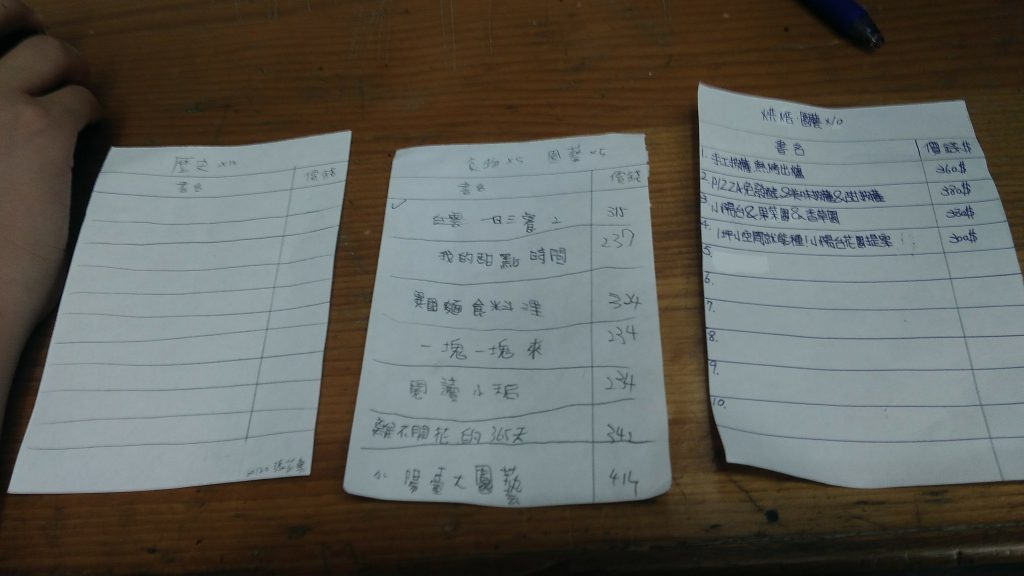 歷史 x10
書名 價錢
食物x5 園藝x5
書名 價錢
✓
白雲 一日三餐 2 315
我的甜點時間 237
雞麵食料理 324
一塊一塊來 234
234
難不開花的365天 342
小陽臺大園藝 414
烘焙 園藝x10
書名 價錢$
1. 手工披薩熱烤出爐 260$
2. PIZZA免發酵&米味披薩&甜披薩 380$
3. 小陽台&果菜園&香草園 380$
4. 1坪小空間就能種!小陽台花園提案 300$
5.
6.
7.
8.
9.
10.